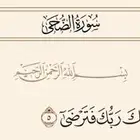 سُورَةُ الضُّحَىٰ
بِسْمِ اللَّهِ الرَّحْمَٰنِ الرَّحِيمِ
كَ رَبُّكَ فَتَرْضَىٰٓ ٥